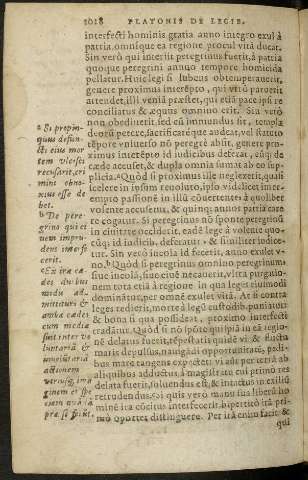 1018 PLATONIS DE LEGIB.
interfecti hominis gratia anno integro exul à
patria, omnique ea regione procul vitā ducat.
Sin verò qui interiit peregrinus fuerit, à patria
quoque peregrini annuo tempore homicida
pellatur. Huic legi si lubens obtemperauerit,
genere proximus interēpto, qui vt hæc
attendet, illi veniā præstet, qui etiā pace ipsi re
conciliatus & æquus omnino erit. Sin verò
non obedierit, sed ea immundus sit, templa
deorū petere, sacrificaréque audeat, vel statuto
tēpore vniuerso nō peregrè abūt, genere pro-
ximus interēpto id iudicibus deferat,
cæde accuset, & dupla omnia iumat
plicia. ᵃ Quod si proximus ille neglexerit, quasi
scelere in ipsum reuoluto, ipso videlicet inter-
empto passionē in illū cōuertente, à quolibet
volente accusetur, & quinque annos patria care
re cogatur. Si peregrinus nō spōte peregrinū
in ciuitate occiderit, eadē lege à volente quo-
cūque id iudicib. deferatur, & similiter iudice-
tur. Sin verò incola id fecerit, anno exulet v-
no. ᵇ Quòd si peregrinus omnino peregrinum,
siue incolā, siue ciuē necauerit, vltra purgatio-
nem tota etiā à regione in qua leges eiusmodi
dominātur, per omnē exulet vitā. At si contra
leges redierit, morte à legū custodib. puniatur:
& bona si qua possidat, proximo interfecti
tradātur. Quòd si nō spōte sui ipsi in eā regio-
nē delatus fuerit, tēpestatis quidē vi & fluctu
maris depulsus, nauigādi opportunitatē, pedi-
bus mare tangens expectet: vi aūt per terrā ab
aliquibus adductus, à magistratu cui primò res
delata fuerit, soluendus est, & intactus in exiliū
retrudendus. ᶜ Si quis verò manu sua liberū ho
minē ira cōcitus interfecerit, bipertitò irā pri-
mò oportet distinguere. Per irā enim facit &
qui
ᵃ Si propin-
quus defun-
cti eius mor
tem vlcisci
recusarit, cri
mini obno-
xius esse de
bet.
ᵇ De pere-
grino qui ci
uem impru-
dens interfe
cerit.
ᶜ Ex ira cæ-
des duobus
modis ad-
mittitur: &
ambæ cædes
cum mediæ
sint inter vo
luntariā &
inuoluntariā
actionem
vtriusque ima
ginem